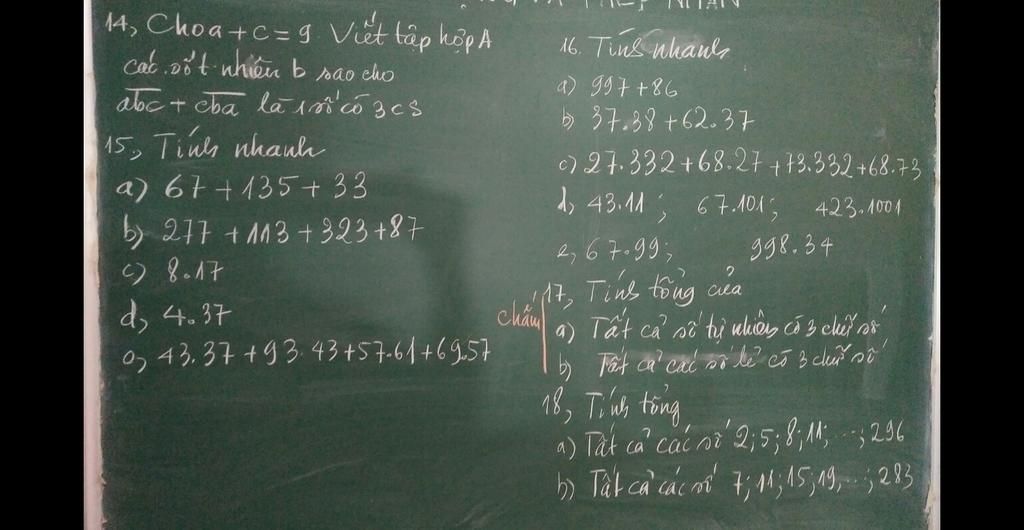 14, Cho a + c = 9 Viết tập hợp A
các số t nhiên b sao cho
abc + cba là 1 số có 3 cs
15, Tính nhanh
a) 67 + 135 + 33
b) 277 + 113 + 323 + 87
c) 8.17
d, 4.37
e, 43.37 + 93.43 + 57.61 + 69.57
16. Tính nhanh
a) 997 + 86
b) 37.38 + 62.37
c) 27.332 + 68.27 + 73.332 + 68.73
d, 43.11 ; 67.101 ; 423.1001
e, 67.99 ; 998.34
chấm
17, Tính tổng của
a) Tất cả số tự nhiên có 3 chữ số
b) Tất cả các số lẻ có 3 chữ số
18, Tính tổng
a) Tất cả các số 2; 5; 8; 11; ...; 296
b) Tất cả các số 7; 11; 15; 19, ...; 283